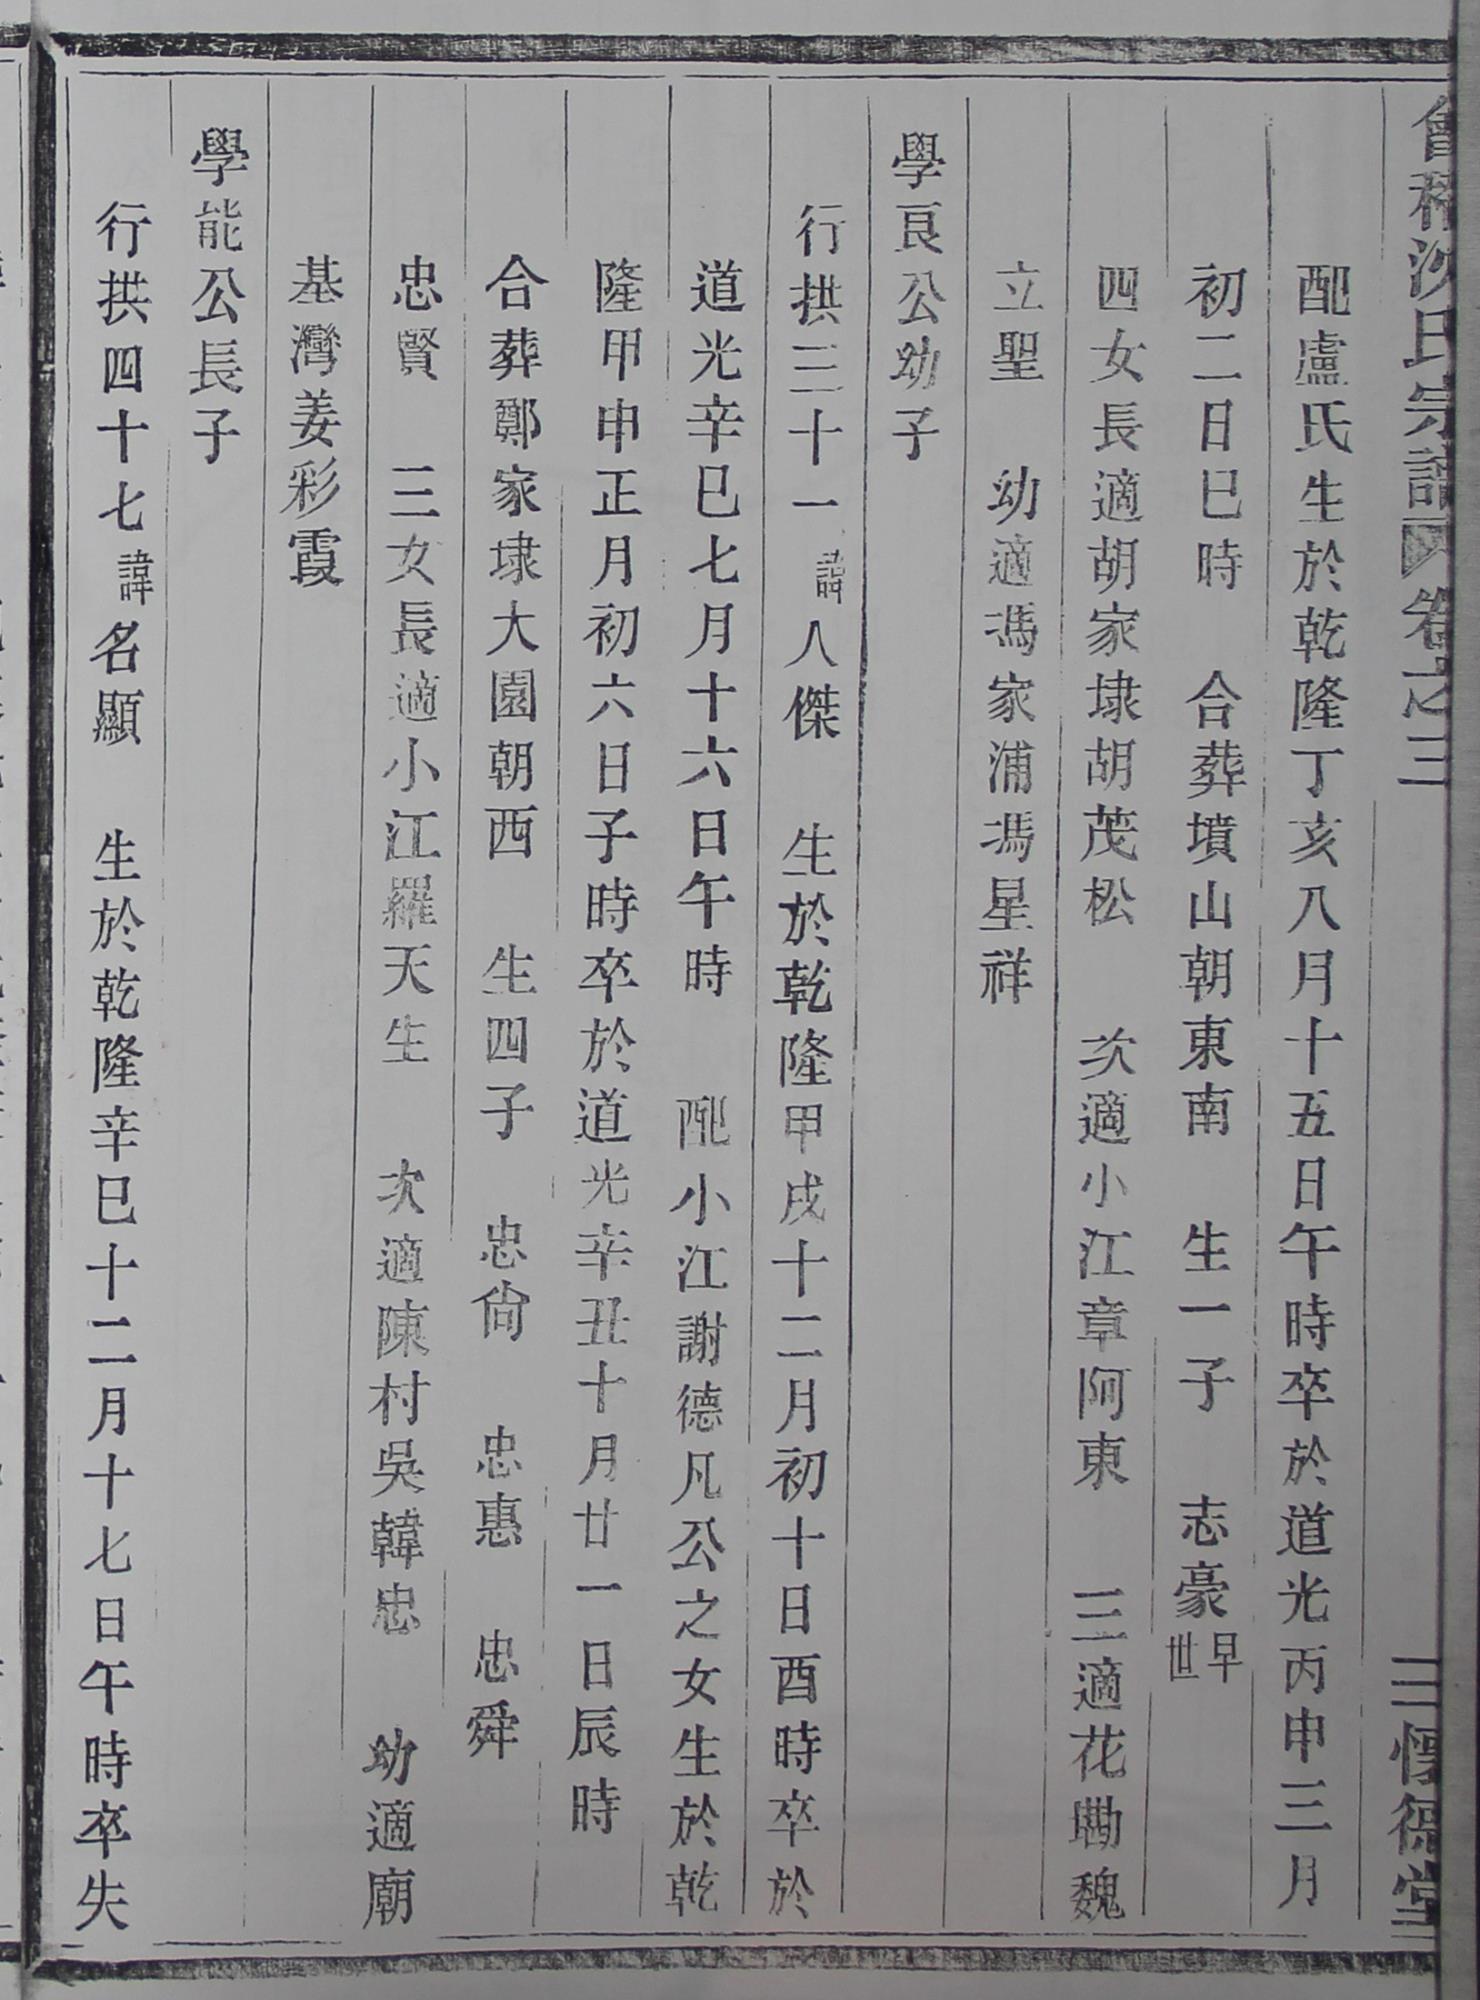 會稽沈氏宗譜 卷之三 三 懷德堂
配盧氏生於乾隆丁亥八月十五日午時卒於道光丙申三月
初二日巳時 合葬墳山朝東南 生一子 志豪早世
四女長適胡家埭胡茂松 次適小江章阿東 三適花墈魏
立聖 幼適馮家浦馮星祥
學良公幼子
行拱三十一諱人傑 生於乾隆甲戌十二月初十日酉時卒於
道光辛巳七月十六日午時 配小江謝德凡公之女生於乾
隆甲申正月初六日子時卒於道光辛丑十月廿一日辰時
合葬鄭家埭大園朝西 生四子 忠尙 忠惠 忠舜
忠賢 三女長適小江羅天生 次適陳村吳韓忠 幼適廟
基灣姜彩霞
學能公長子
行拱四十七諱名顯 生於乾隆辛巳十二月十七日午時卒失